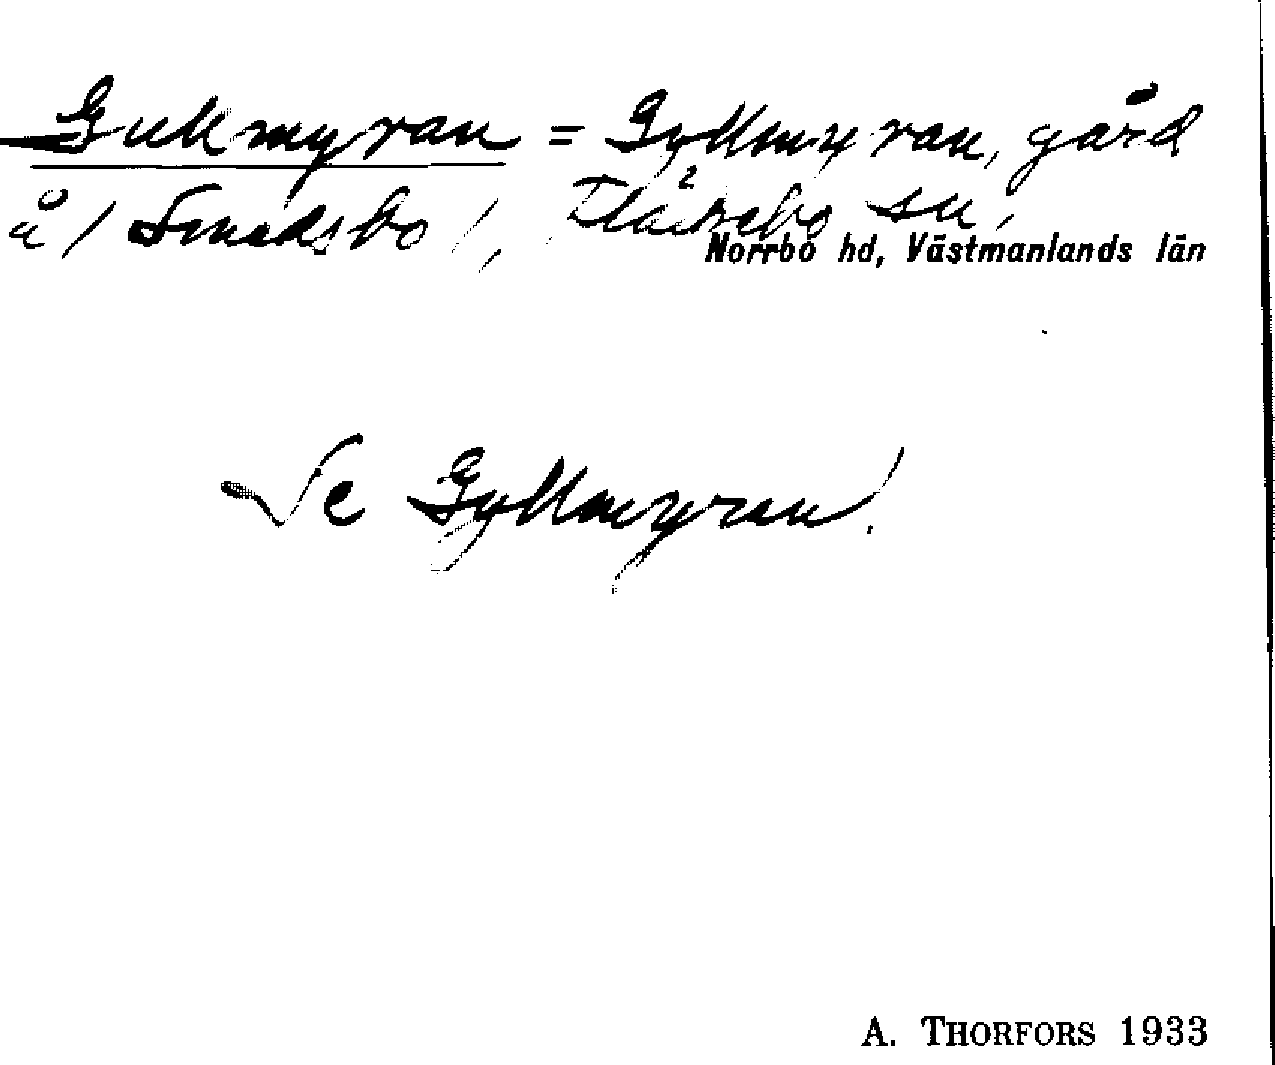 Gullmyran = Gyllmyran, gård
å / Smedsbo /, Fläckebo sn,
Norrbo hd, Västmanlands län
Se Gyllmyran!
A. THORFORS 1933